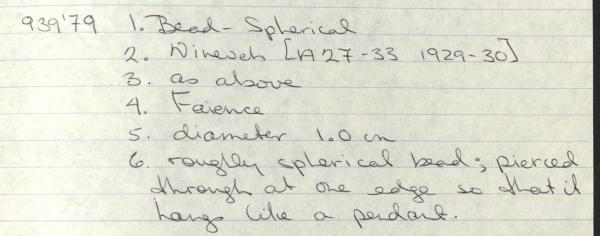 939'79 1. Bead - Spherical
2. Nineveh [A 27-33 1929-30]
3. as above
4. Faience
5. diameter 1.0 cm
6. roughly spherical bead; pierced
through at one edge so that it
hangs like a pendant.